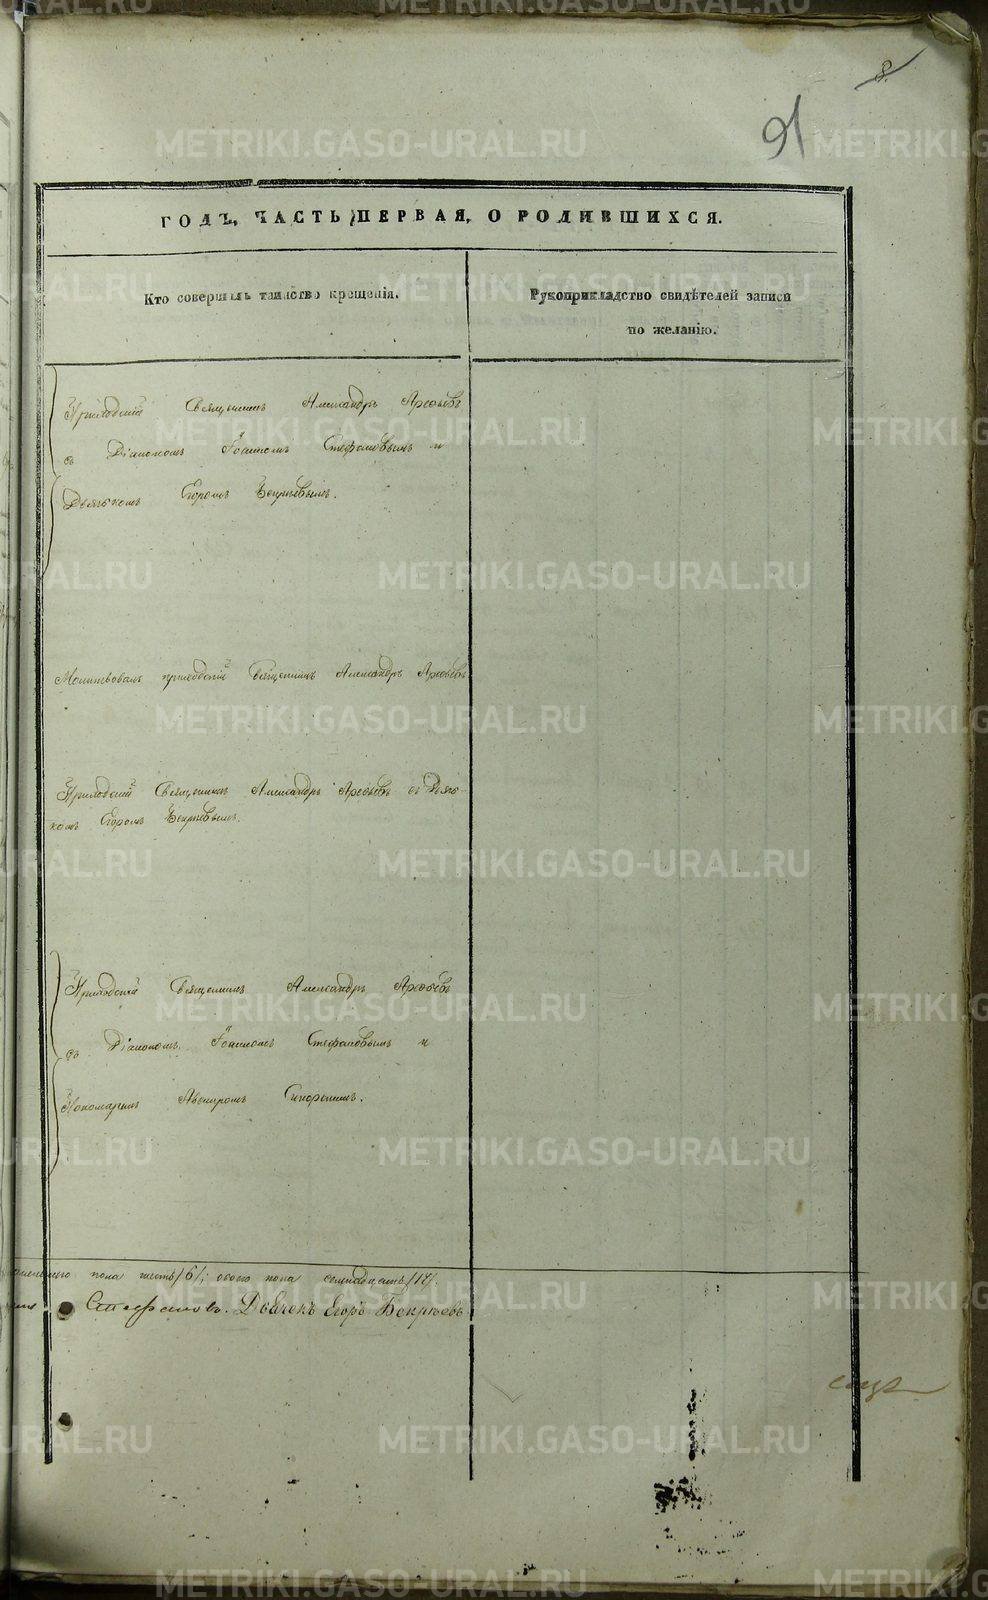 8
91
ГОДЪ, ЧАСТЬ ПЕРВАЯ, О РОДИВШИХСЯ.
Кто совершалъ таинство крещенія.
Рукоприкладство свидѣтелей записи
по желанію.
Приходскій Священникъ Александръ Арефьевъ
съ Діакономъ Іоанномъ Стефановымъ и
Дьячкомъ Егоромъ Бекрѣевымъ.
Молитвовалъ приходскій Священникъ Александръ Арефьевъ
Приходскій Священникъ Александръ Арефьевъ съ Дьяч-
комъ Егоромъ Бекрѣевымъ.
Приходскій Священникъ Александръ Арефьевъ
съ Діакономъ Іоанномъ Стефановымъ и
Пономаремъ
пола шесть /6/; обоего пола семнадцать /17/.
Стефановъ. Дьячекъ Егоръ Бекрѣевъ
METRIKI.GASO-URAL.RU